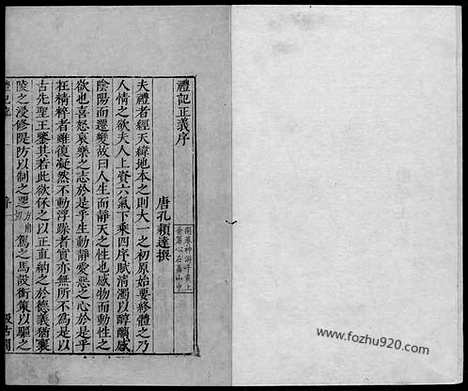 禮記正義序
唐孔穎達撰
夫禮者經天緯地本之則大一之初原始要終體之乃
人情之欲夫人上資六氣下乘四序賦清濁以醇醨感
陰陽而遷變故曰人生而靜天之性也感物而動性之
欲也喜怒哀樂之志於是乎生動靜愛惡之心於是乎
在精粹者雖復凝然不動浮躁者實亦無所不為是以
古先聖王鑒其若此欲保之以正直納之於德義猶襄
陵之浸修隄防以制之
駕之馬設銜策以驅之
汲古閣
www.fozhu920.com